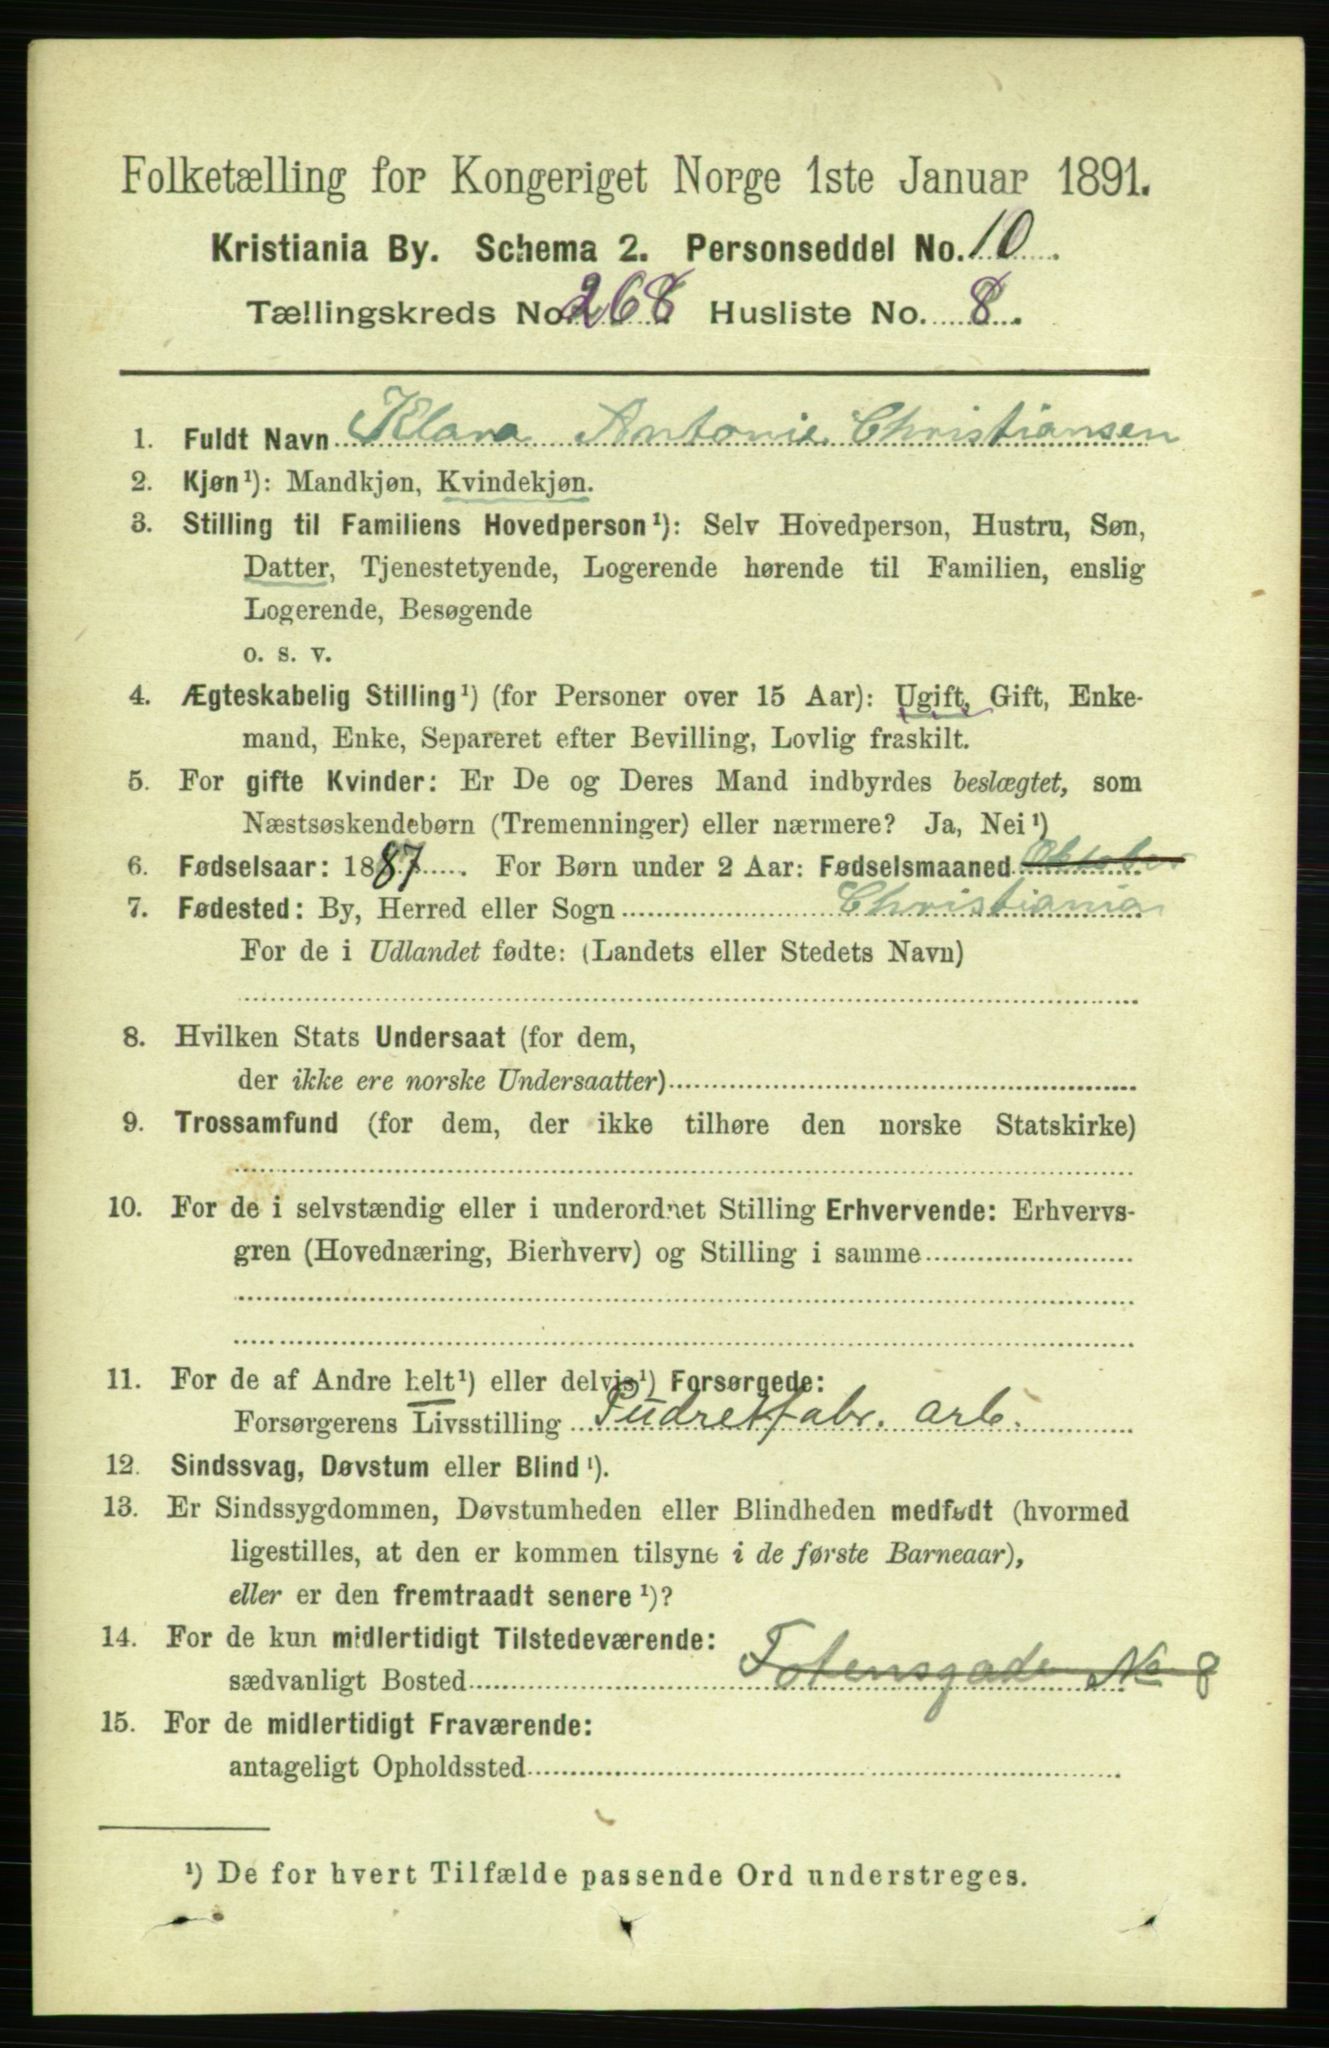 Folketælling for Kongeriget Norge 1ste Januar 1891.
Kristiania By. Schema 2. Personseddel No. 10.
Tællingskreds No. 268 Husliste No. 8.
1. Fuldt Navn Klara Antonie Christiansen
2. Kjøn¹): Mandkjøn, Kvindekjøn.
3. Stilling til Familiens Hovedperson¹): Selv Hovedperson, Hustru, Søn,
Datter, Tjenestetyende, Logerende hørende til Familien, enslig
Logerende, Besøgende
o. s. v.
4. Ægteskabelig Stilling¹) (for Personer over 15 Aar): Ugift, Gift, Enke-
mand, Enke, Separeret efter Bevilling, Lovlig fraskilt.
5. For gifte Kvinder: Er De og Deres Mand indbyrdes beslægtet, som
Næstsøskendebørn (Tremenninger) eller nærmere? Ja, Nei¹)
6. Fødselsaar: 1887. For Børn under 2 Aar: Fødselsmaaned Oktober
7. Fødested: By, Herred eller Sogn Christiania
For de i Udlandet fødte: (Landets eller Stedets Navn)
8. Hvilken Stats Undersaat (for dem,
der ikke ere norske Undersaatter)
9. Trossamfund (for dem, der ikke tilhøre den norske Statskirke)
10. For de i selvstændig eller i underordnet Stilling Erhvervende: Erhvervs-
gren (Hovednæring, Bierhverv) og Stilling i samme
11. For de af Andre helt¹) eller delvis¹) Forsørgede:
Forsørgerens Livsstilling Pudretfabr. arb.
12. Sindssvag, Døvstum eller Blind¹).
13. Er Sindssygdommen, Døvstumheden eller Blindheden medfødt (hvormed
ligestilles, at den er kommen tilsyne i de første Barneaar),
eller er den fremtraadt senere¹)?
14. For de kun midlertidigt Tilstedeværende:
sædvanligt Bosted Totensgade No 8
15. For de midlertidigt Fraværende:
antageligt Opholdssted
¹) De for hvert Tilfælde passende Ord understreges.